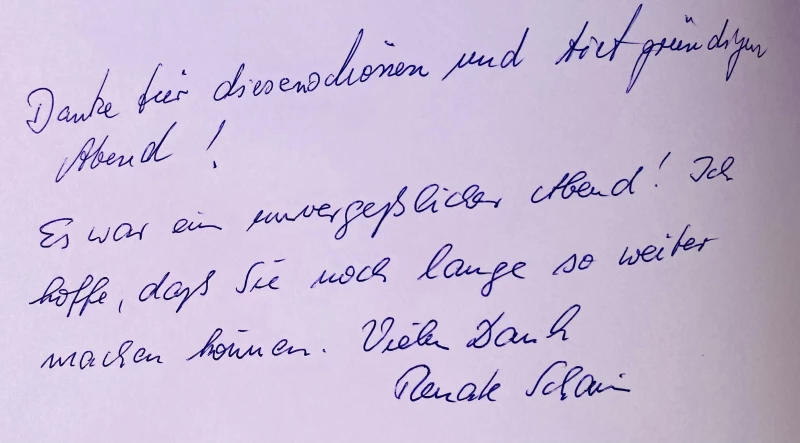 Danke für diesen schönen und tiefgründigen
Abend!
Es war ein unvergeßlicher Abend! Ich
hoffe, daß Sie noch lange so weiter
machen können. Vielen Dank
Renate